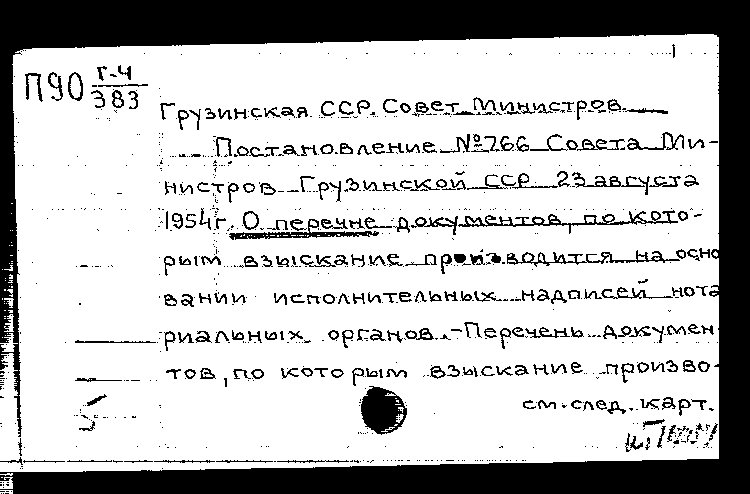 П90 Г-4
383
Грузинская ССР. Совет Министров
Постановление №766 Совета Ми-
нистров Грузинской ССР 23 августа
1954г. О перечне документов, по кото-
рым взыскание производится на осно
вании исполнительных надписей нота
риальных органов.-Перечень докумен
тов, по которым взыскание произво-
см. след. карт.